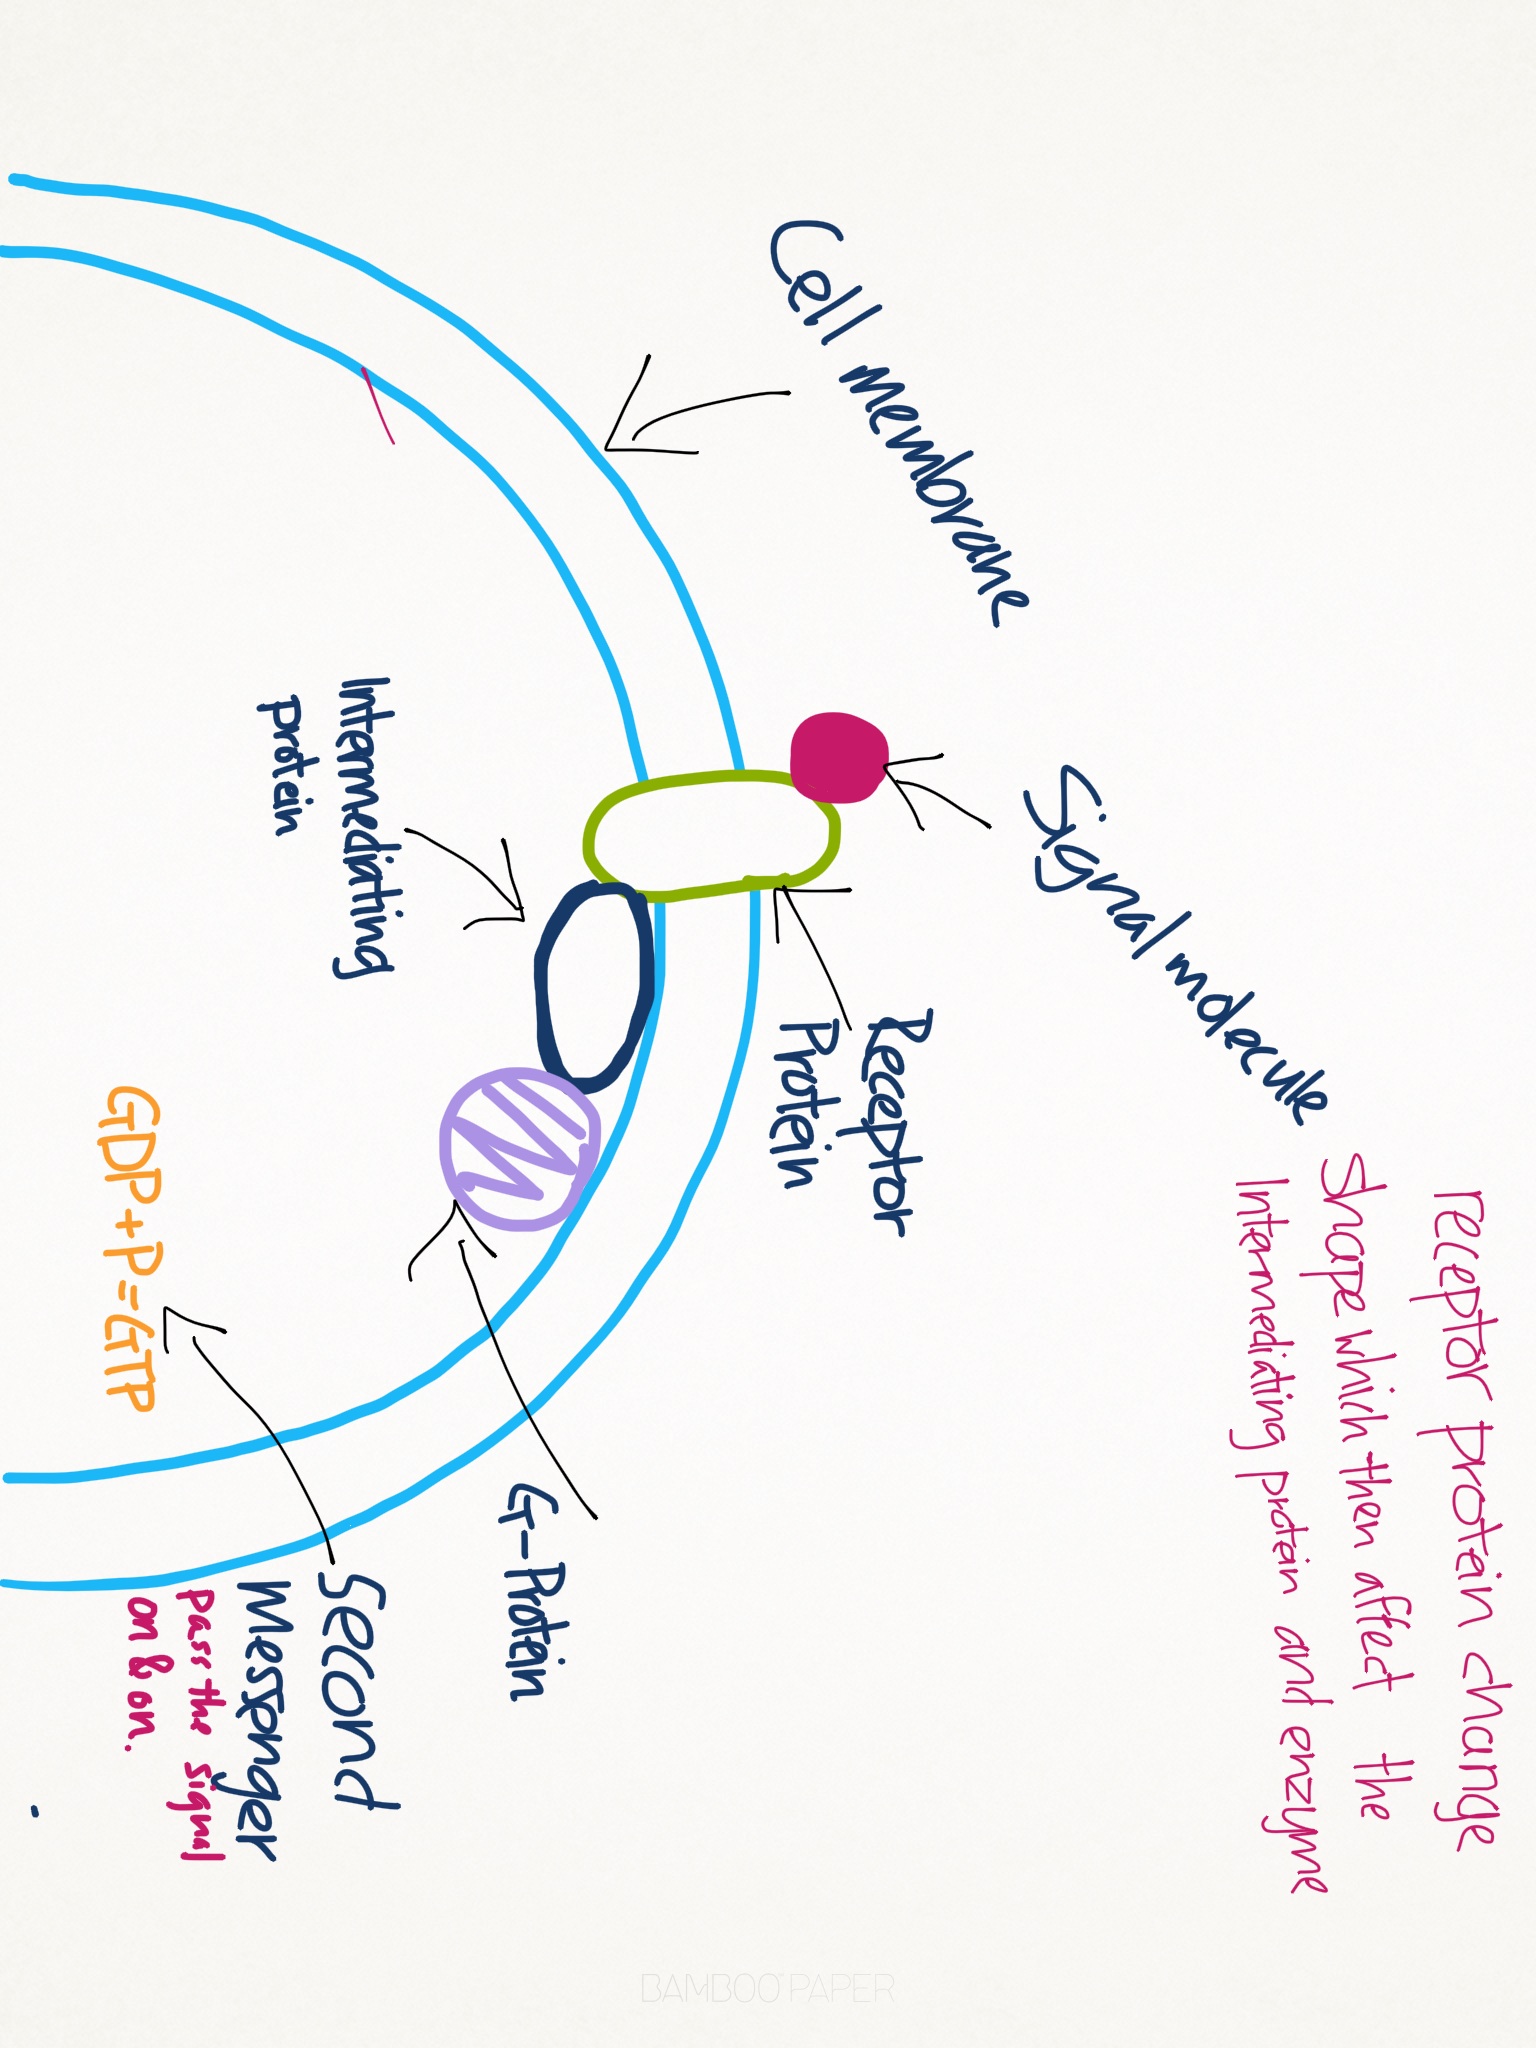 receptor protein change
shape which then affect the
Intermediating protein and enzyme
Signal molecule
Cell membrane
Receptor
Protein
Intermediating
protein
G-Protein
Second
Messenger
pass the signal
on & on.
GDP+P=GTP
BAMBOO PAPER